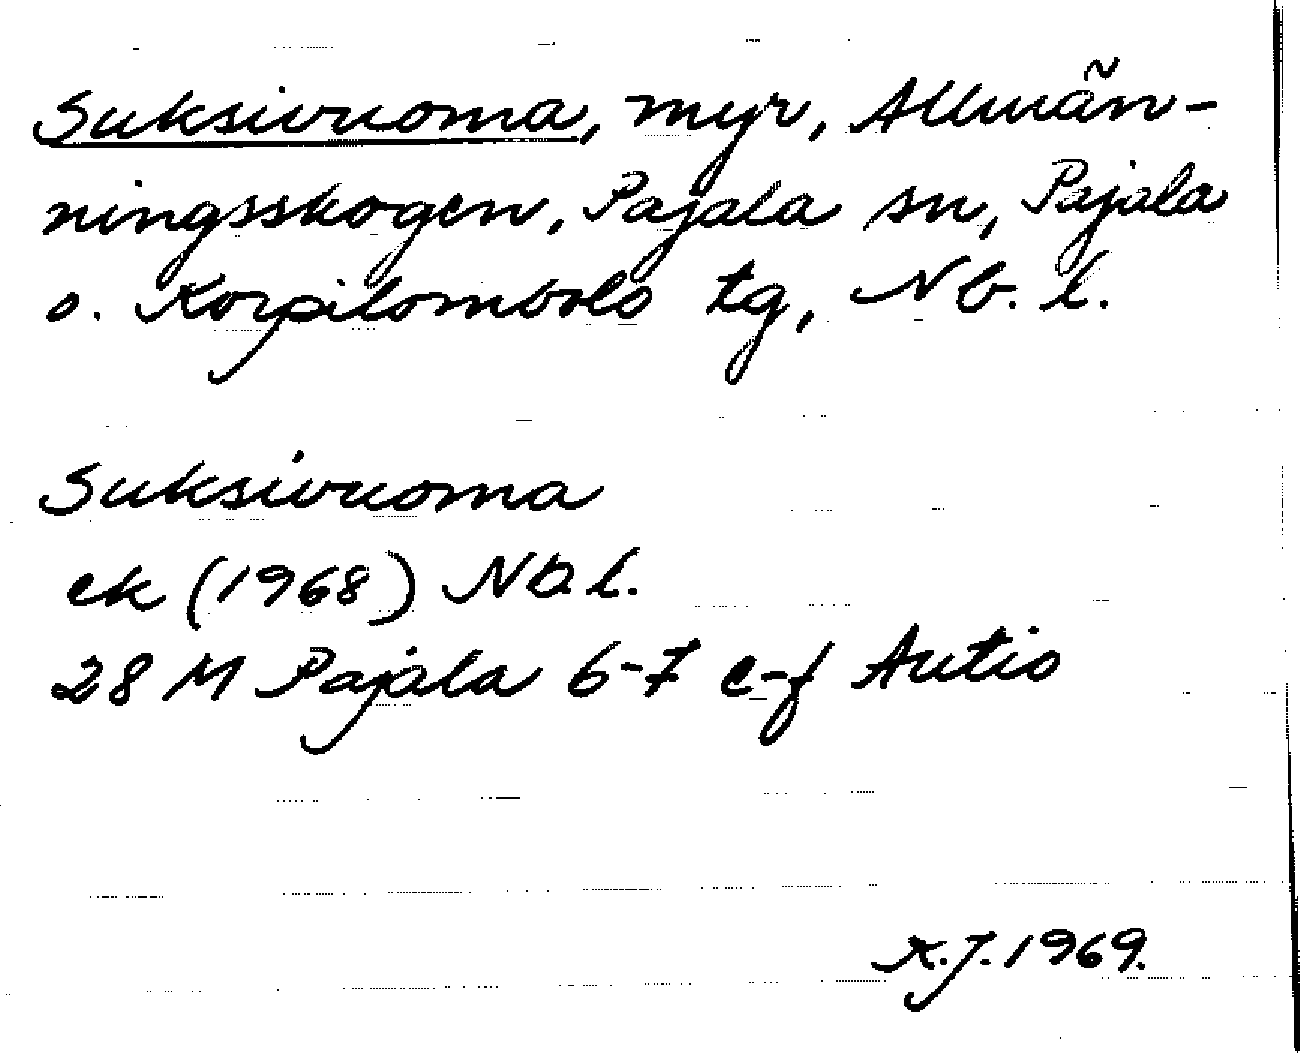 Suksivuoma, myr, Allmän-
ningsskogen, Pajala sn, Pajala
o. Korpilombolo tg, Nb. l.
Suksivuoma
ek (1968) Nb. l.
28 M Pajala 6-7 e-f Autio
K.J. 1969.